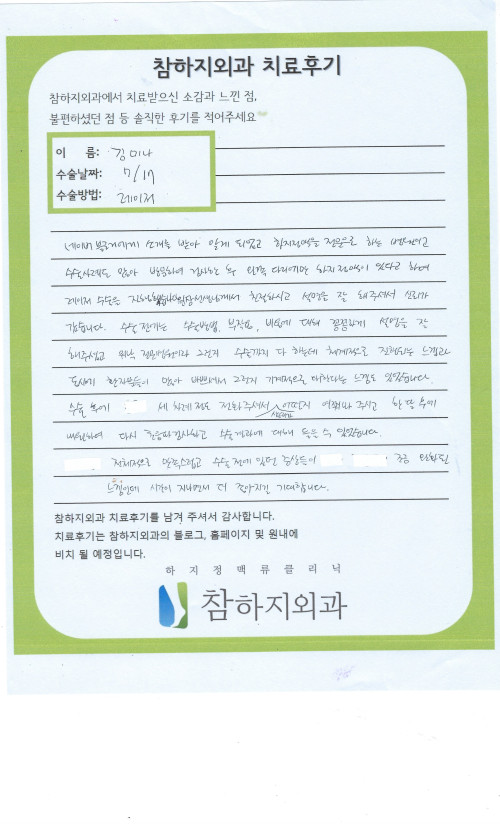 참하지외과 치료후기
참하지외과에서 치료받으신 소감과 느낀 점,
불편하셨던 점 등 솔직한 후기를 적어주세요
이 름: 김미나
수술날짜: 7/17
수술방법: 레이저
네이버 블로그에서 소개를 받아 알게 되었고 하지정맥을 전문으로 하는 병원이고
수술사례도 많아 방문하여 검사한 후 왼쪽 다리에만 하지정맥이 있다고 하여
레이저 수술을 진행했습니다. 선생님께서 친절하시고 설명을 잘 해주셔서 신뢰가
갔습니다. 수술 전에는 수술방법, 부작용, 비용에 대해 꼼꼼하게 설명을 잘
해주셨고 워낙 전문병원이라 그런지 수술까지 다 하는데 체계적으로 진행되는 느낌과
동시에 환자분들이 많아 바빠서 그런지 기계적으로 대한다는 느낌도 있었습니다.
수술 후에 세 차례 정도 전화주셔서 상태가 어떤지 여쭤봐 주시고 한 달 후에
방문하여 다시 초음파검사하고 수술 결과에 대해 들을 수 있었습니다.
전체적으로 만족스럽고 수술 전에 있던 증상들이 조금 완화된
느낌인데 시간이 지나면서 더 좋아지길 기대합니다.
참하지외과 치료후기를 남겨 주셔서 감사합니다.
치료후기는 참하지외과의 블로그, 홈페이지 및 원내에
비치 될 예정입니다.
하 지 정 맥 류 클 리 닉
참하지외과